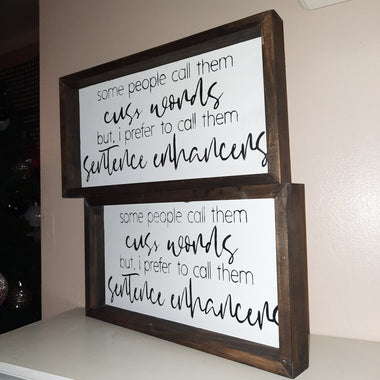 some people call them
cuss words
but, i prefer to call them
sentence enhancers
some people call them
cuss words
but, i prefer to call them
sentence enhancers